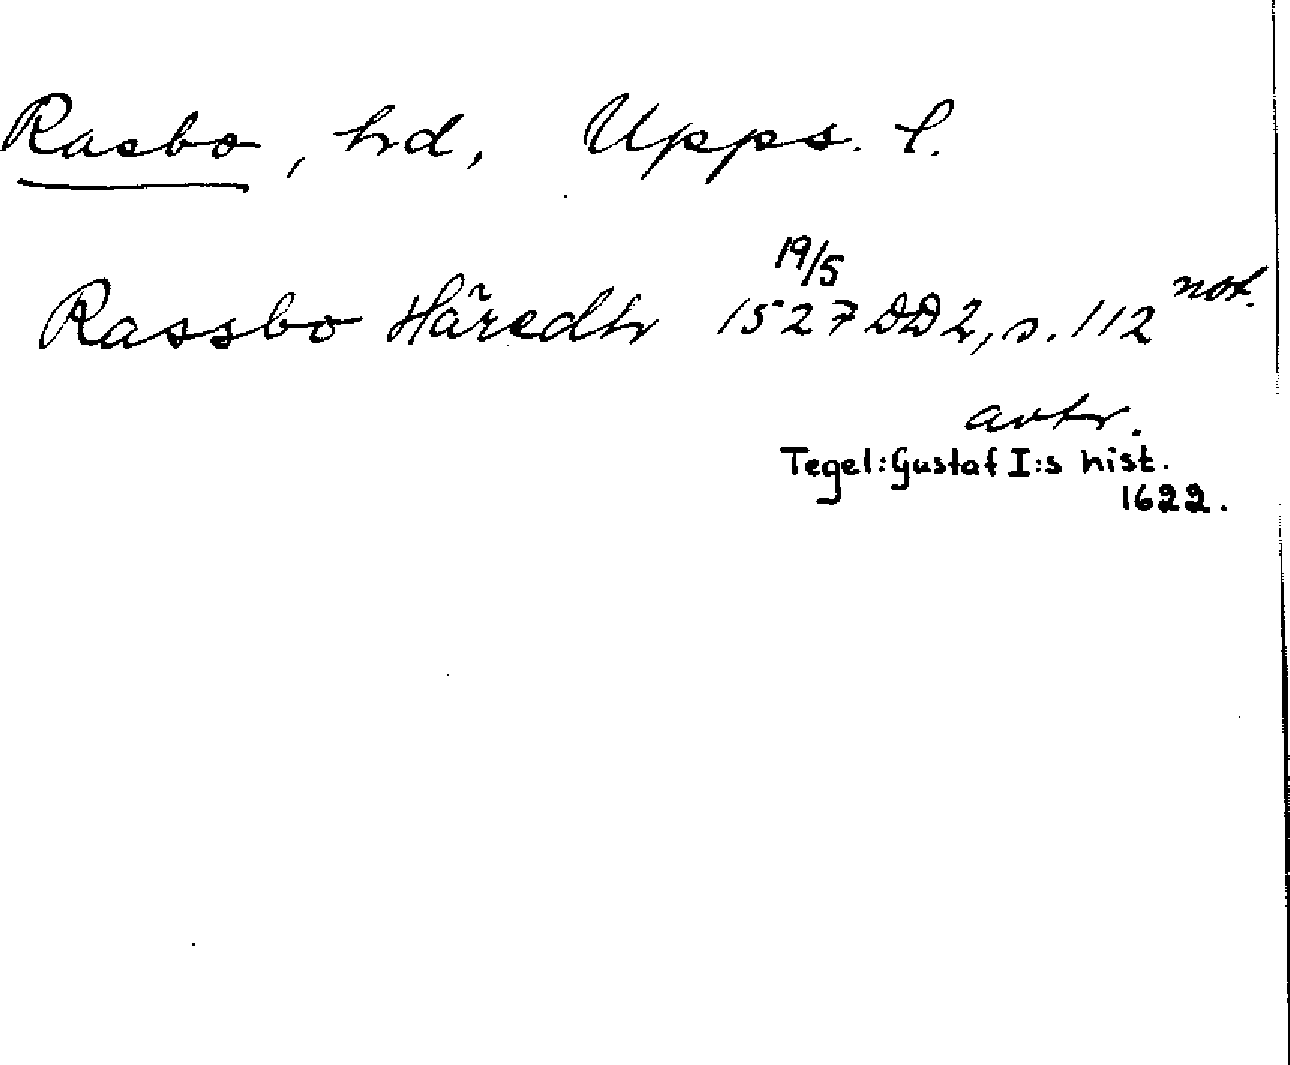 Rasbo, hd, Upps. l.
19/5
Rassbo Häredh 1527 DD2, s. 112 not.
avtr.
Tegel: Gustaf I:s hist.
1622.